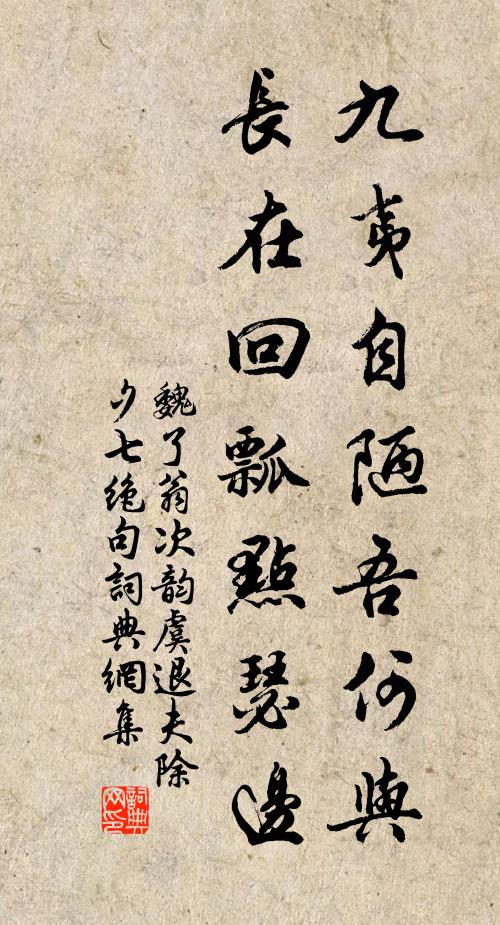 九夷自陋吾何與
長在回瓢點瑟邊
魏了翁次韵虞退夫除
夕七绝句詞典網集
詞典网印